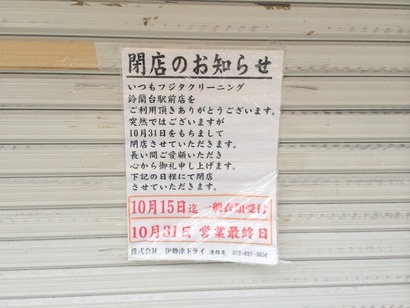 閉店のお知らせ
いつもフジタクリーニング
鈴蘭台駅前店を
ご利用頂きありがとうございます。
突然ではございますが
10月31日をもちまして
閉店させていただきます。
長い間ご愛顧いただき
心から御礼申し上げます。
下記の日程にて閉店
させていただきます。
10月15日迄 一般衣類受付
10月31日 営業最終日
株式会社 伊勢津ドライ